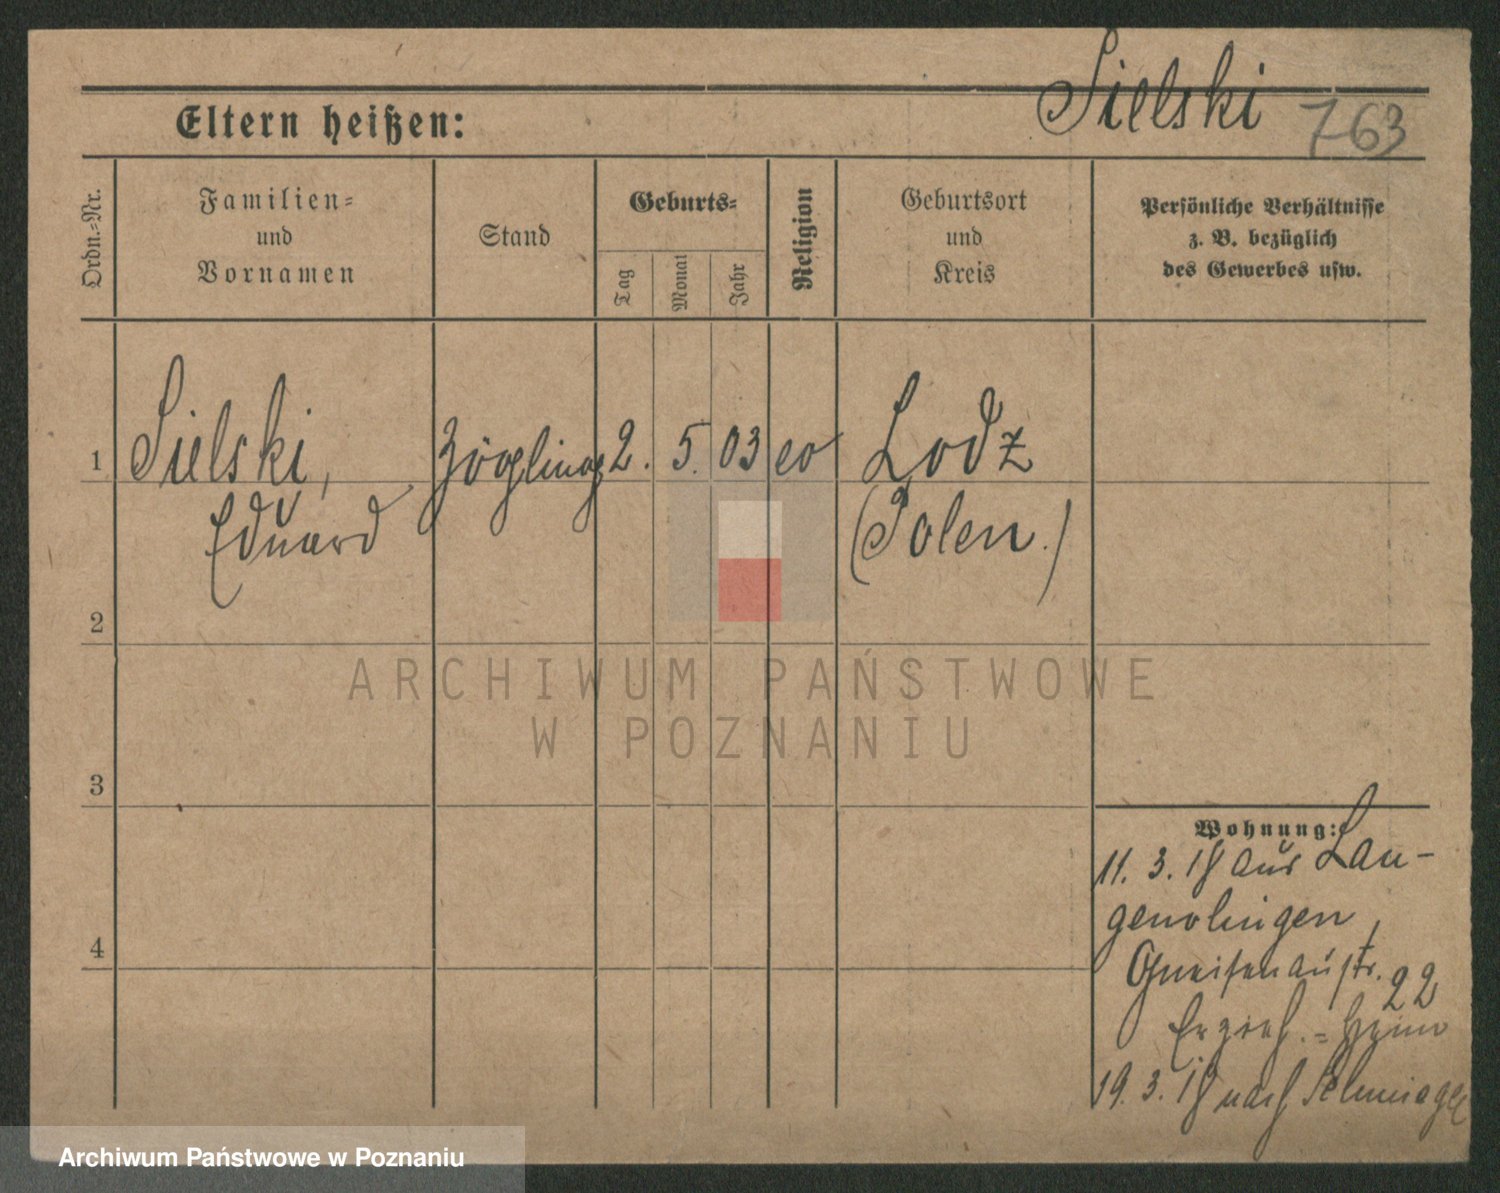 Sielski 763
Eltern heißen:
Ordn.-Nr.
Familien-
und
Vornamen
Stand
Geburts-
Tag
Monat
Jahr
Religion
Geburtsort
und
Kreis
Persönliche Verhältnisse
z. B. bezüglich
des Gewerbes usw.
1 Sielski, Zögling 2. 5. 03 ev Lodz
Eduard (Polen.)
2
3
4
Wohnung:
11. 3. 18 aus Lan-
genolingen,
Gneisenaustr. 22
Erzieh.-Heim
19. 3. 18 nach
ARCHIWUM PAŃSTWOWE
W POZNANIU
Archiwum Państwowe w Poznaniu